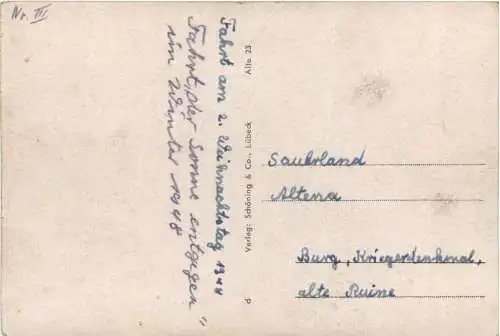 Nr. III
Fahrt am 2. Weihnachtstag 1944
Fahrt „der Sonne entgegen"
im Winter 1948
Verlag: Schöning & Co., Lübeck
Alte 23
P
Sauerland
Altena
Burg, Kriegerdenkmal,
alte Ruine